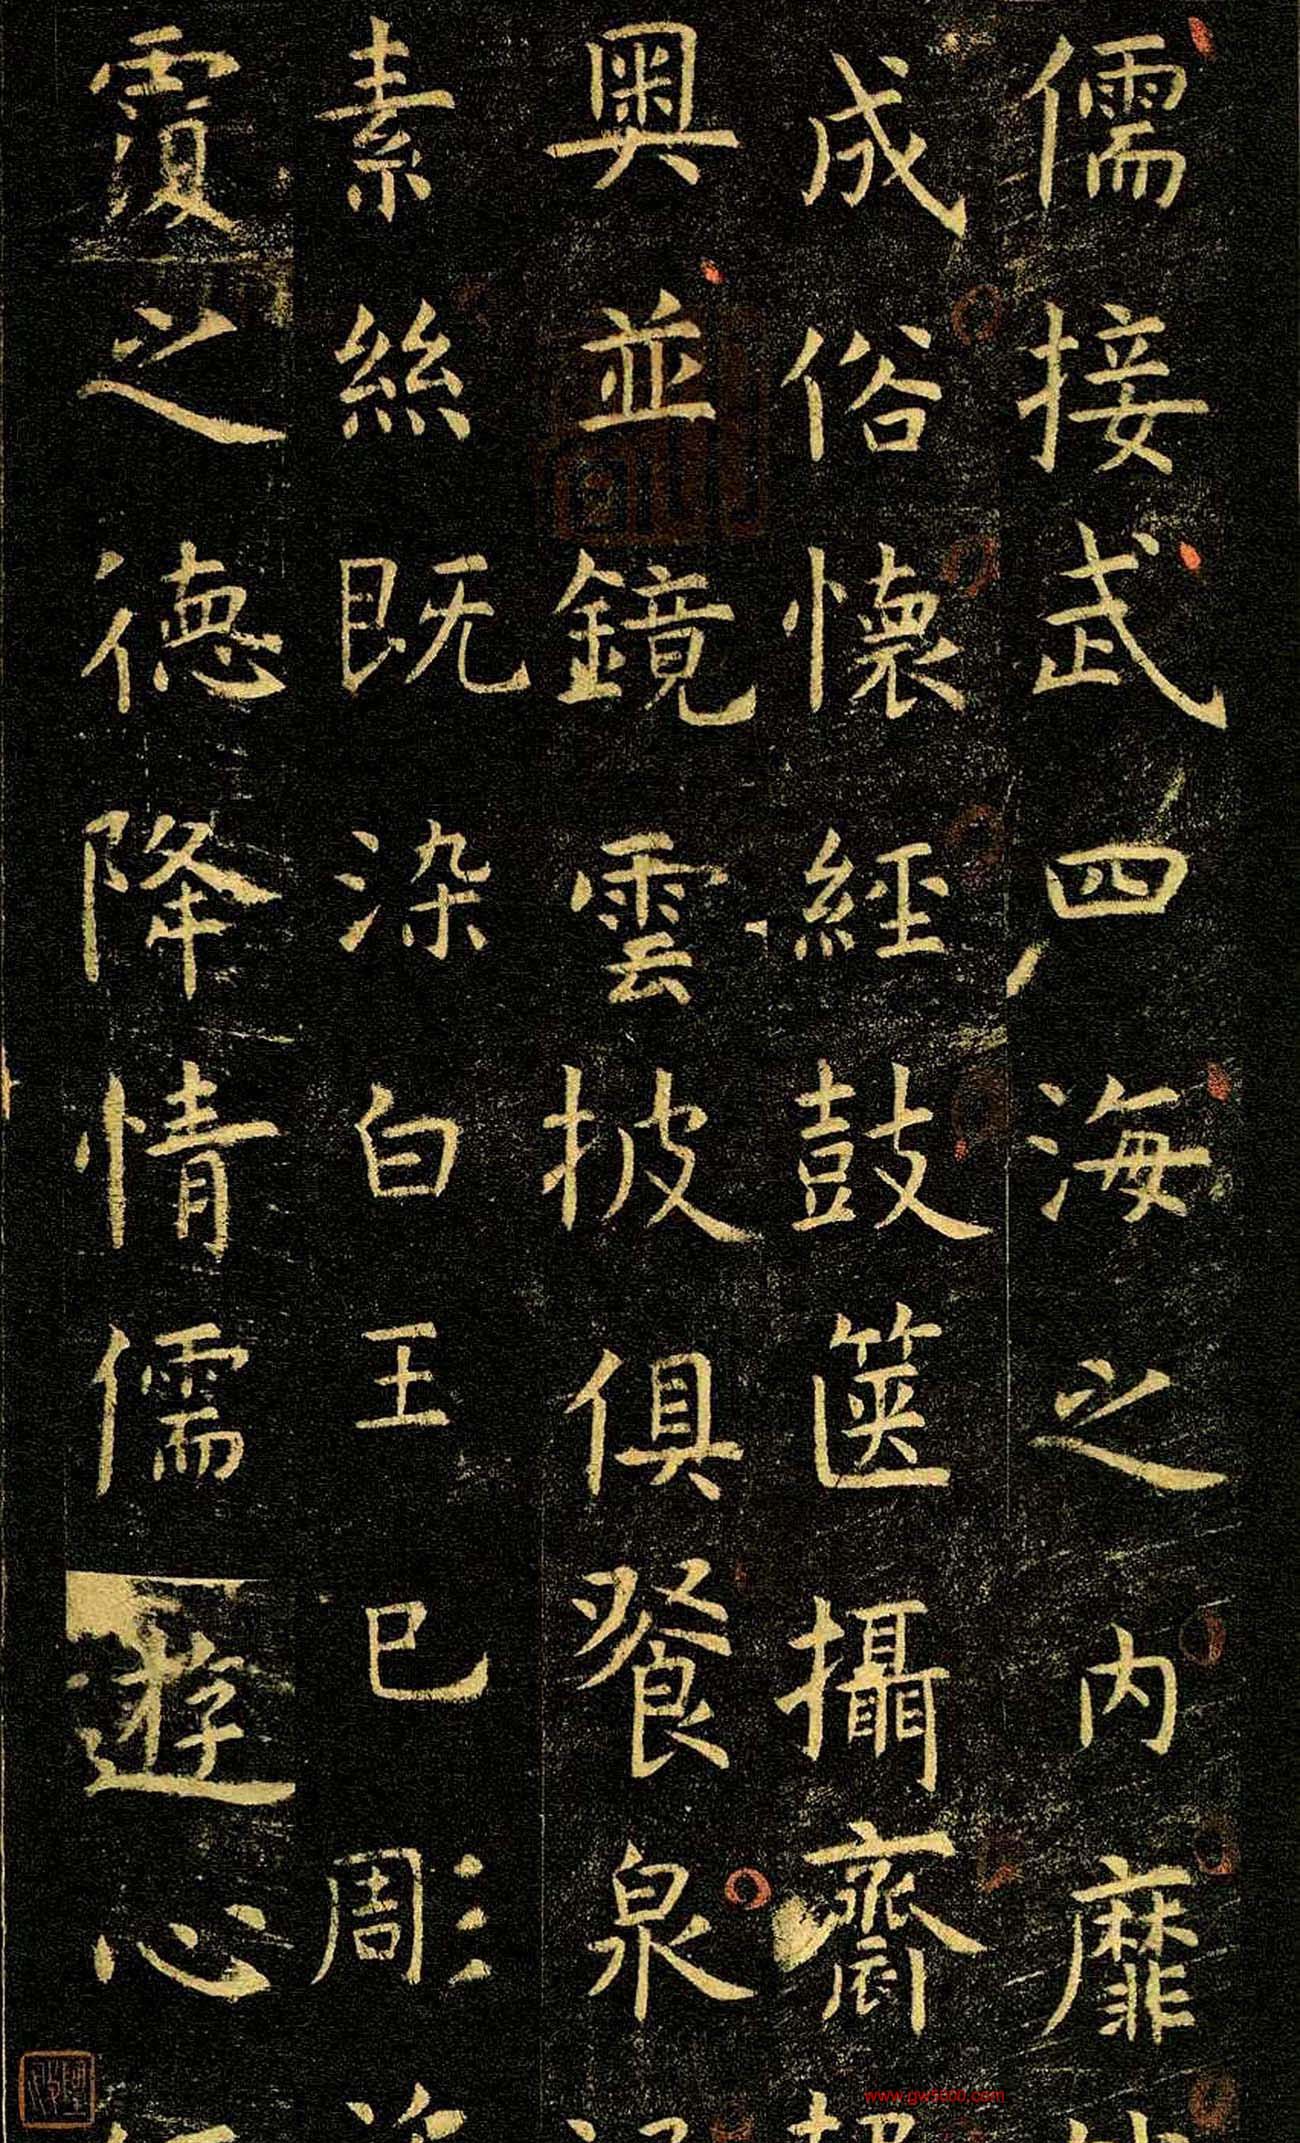 儒接武四海之内靡
成俗懷經鼓篋攝齋
奧並鏡雲披俱餐泉
素絲既染白王已彫
覆之德降情儒遊心
www.gw5000.com